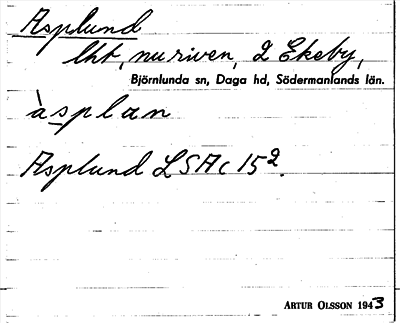 Asplund
lht, nu riven, 2 Ekeby,
Björnlunda sn, Daga hd, Södermanlands län.
àsplan
Asplund LSAc 15².
ARTUR OLSSON 1943